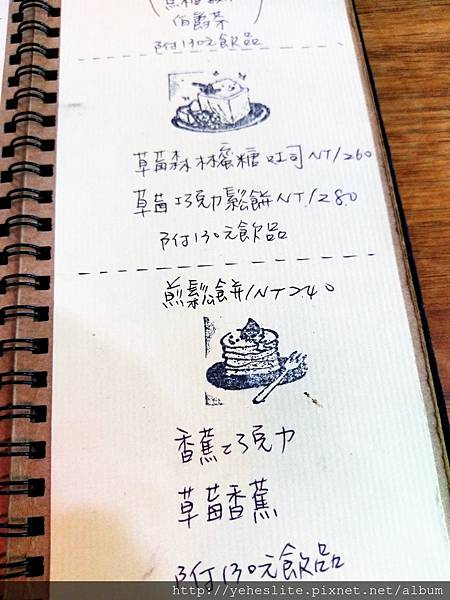 伯爵茶
附130元飲品
草莓森林蜜糖吐司NT/260
草莓巧克力鬆餅NT/280
附130元飲品
煎鬆餅/NT240
香蕉巧克力
草莓香蕉
附130元飲品
http://yeheslite.pixnet.net/album